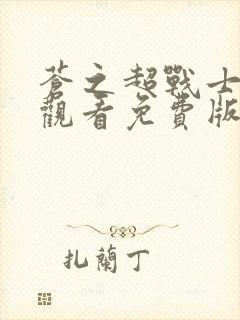 蒼之超戰士
觀看免費版
扎蘭丁